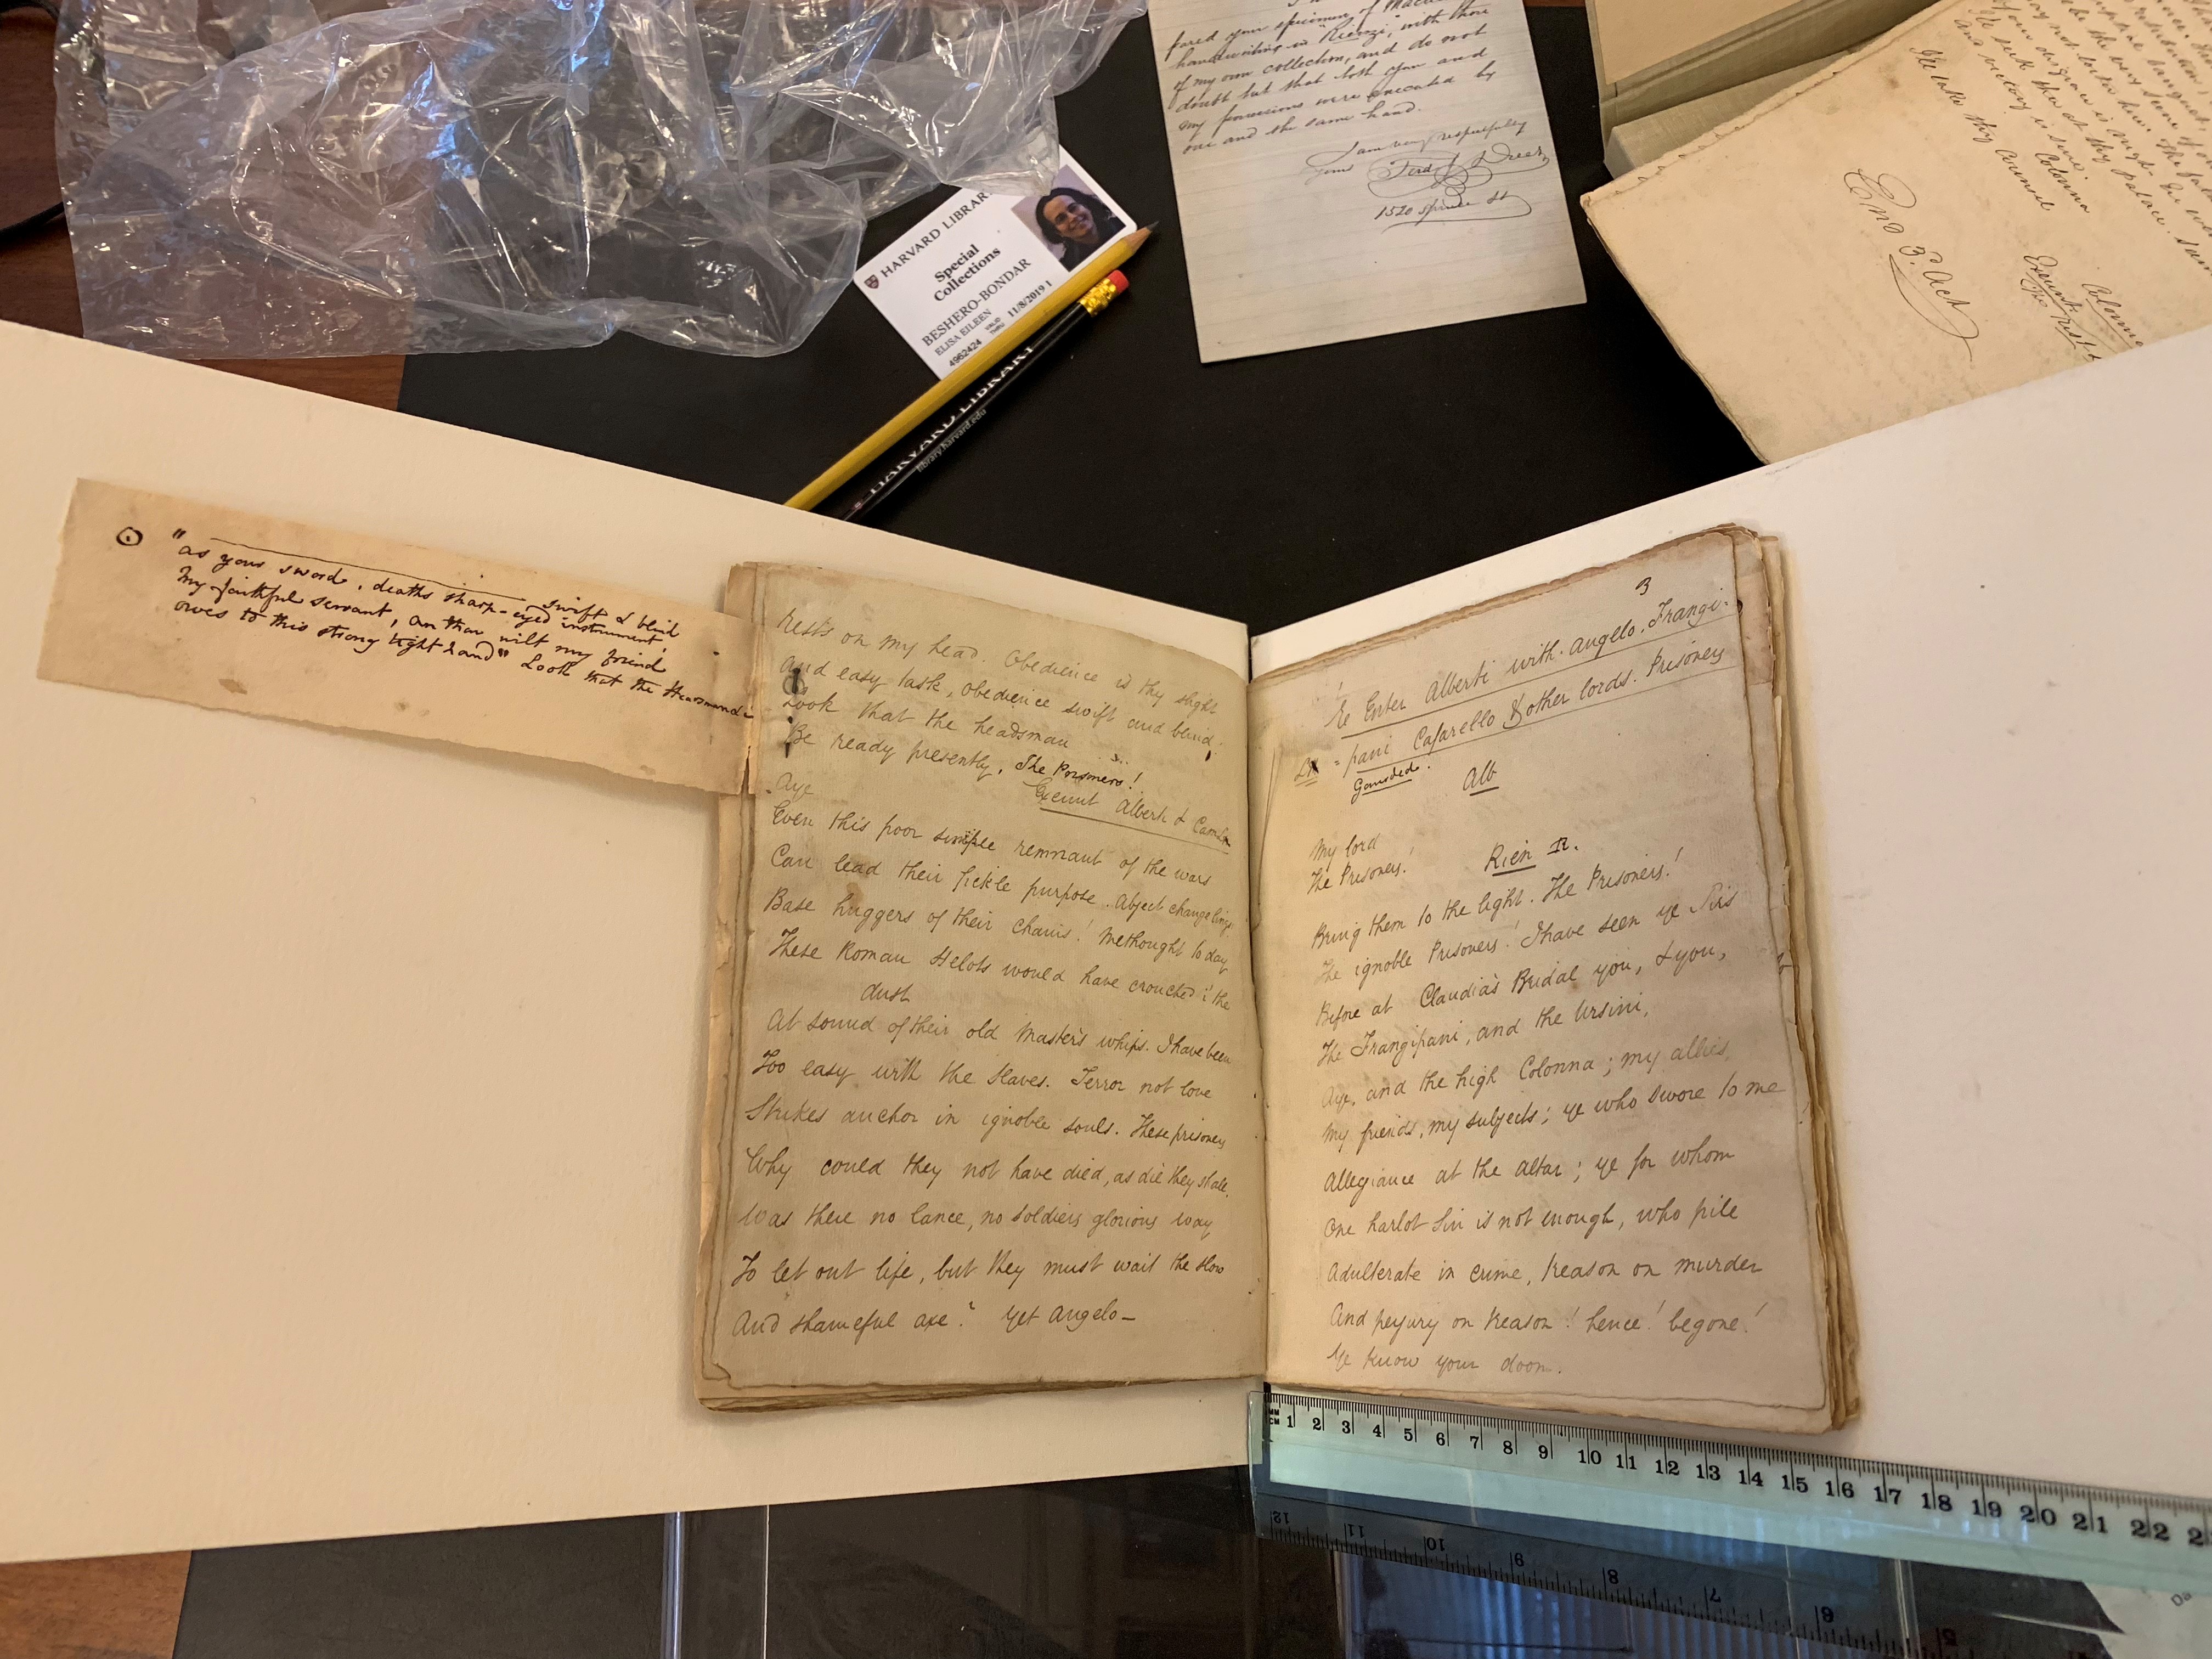 fared your specimen of
handwriting in "Rienzi," with those
of my own collection, and do not
doubt but that both your and
my possessions were executed by
one and the same hand.
I am very respectfully
yours Ferd J Dreer
1520 spruce St
HARVARD LIBRAR
Special
Collections
BESHERO-BONDAR
ELISA EILEEN
VALID THRU 11/8/2019 1
4962424
HARVARD LIBRARY
library.harvard.edu
is sure.
Colonna
thy Counsel
End 3. Act
Exeunt
"as your sword, deaths sharp-eyed instrument, swift & blind
My faithful servant, an thou wilt my friend
owes to this strong right hand" Look that the Headsman
Rests on my head. Obedience is thy slight
And easy task, obedience swift and blind;
Look that the headsman
Be ready presently. The Prisoners!
Aye
Exeunt Alberti & Camillo
Even this poor simple remnant of the wars
Can lead their fickle purpose. Abject changelings
Base huggers of their chains! Methought to day
These Roman Helots would have crouched i' the
dust
At sound of their old Master's whips. I have been
Too easy with the slaves. Terror not love
Strikes anchor in ignoble souls. These prisoners
Why could they not have died, as die they shall.
Was there no lance, no soldiers glorious way
To let out life, but they must wait the slow
And shameful axe? Yet Angelo—
3
Re Enter Alberti with Angelo, Frangi-
=pani Cafarello & other lords. Prisoners
Guarded.
Alb
My lord
The Prisoners!
Rien R.
Bring them to the light. The Prisoners!
The ignoble Prisoners! I have seen ye Sirs
Before at Claudia's Bridal you, & you,
The Frangipani, and the Ursini,
Aye, and the high Colonna; my allies,
My friends, my subjects; ye who swore to me
Allegiance at the altar; ye for whom
One harlot sin is not enough, who pile
Adulterate in crime, treason on murder
And perjury on treason! hence! begone!
Ye know your doom.
MM
CM 1 2 3 4 5 6 7 8 9 10 11 12 13 14 15 16 17 18 19 20 21 22 2
12 11 10 9 8 7 6 5